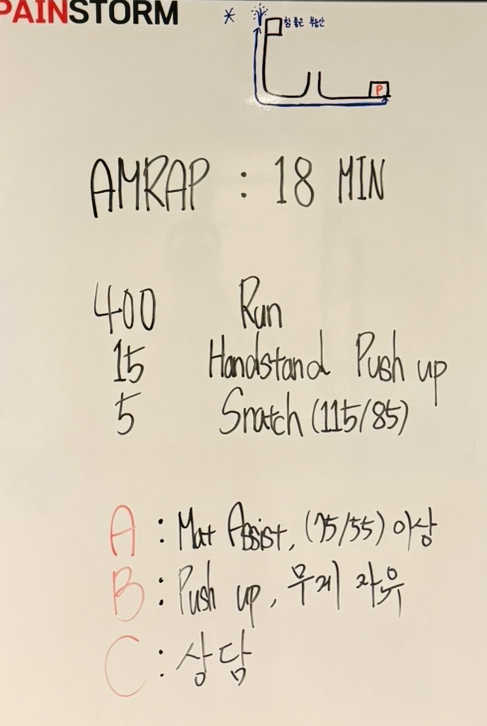 PAINSTORM
* 참좋은 부동산
P
AMRAP : 18 MIN
400 Run
15 Handstand Push up
5 Snatch (115/85)
A : Mat Assist, (75/55) 이상
B : Push up, 무게 자유
C : 상담